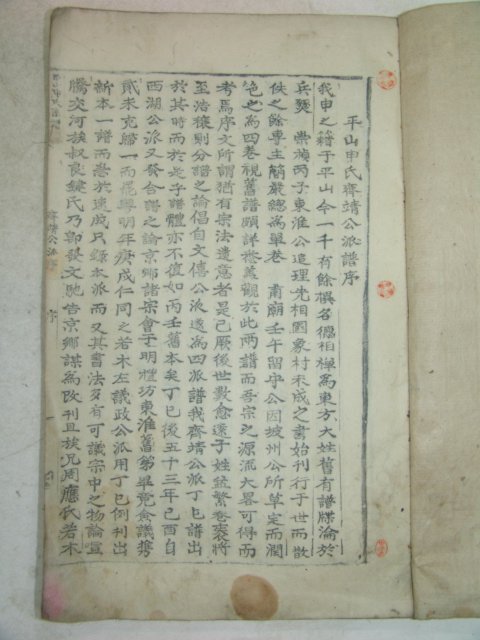 平山申氏齊靖公派譜序
我申之籍于平山今一千有餘禩名德相禪為東方大姓舊有譜牒淪於
兵燹 崇禎丙子東淮公追理先相國象村未成之書始刊行于世而散
佚之餘專主簡嚴總為單卷 肅廟壬午留守公因坡州公所草定而潤
色之為四卷視舊譜頗詳櫽蓋觀於此兩譜而吾宗之源流大畧可得而
考焉序文所謂猶有宗法遺意者是已厥後世數愈遠子姓益繁卷袠將
至浩穰則分譜之論倡自文僖公派遂為四派譜我齊靖公派丁巳譜出
於其時而於是乎譜體亦不復如丙壬舊本矣丁巳後五十三年己酉自
西湖公派又發合譜之論京鄉諸宗會于明禮坊東淮舊第畢竟僉議携
貳未克歸一而罷粤明年庚戌仁同之若木左議政公派用丁巳例刊出
新本一譜而急於速成只錄本派而又其書法多有可議宗中之物論宣
騰交河族叔良鍵氏乃郵發文馳告京鄉謀為改刊且族兄周應氏若木
序